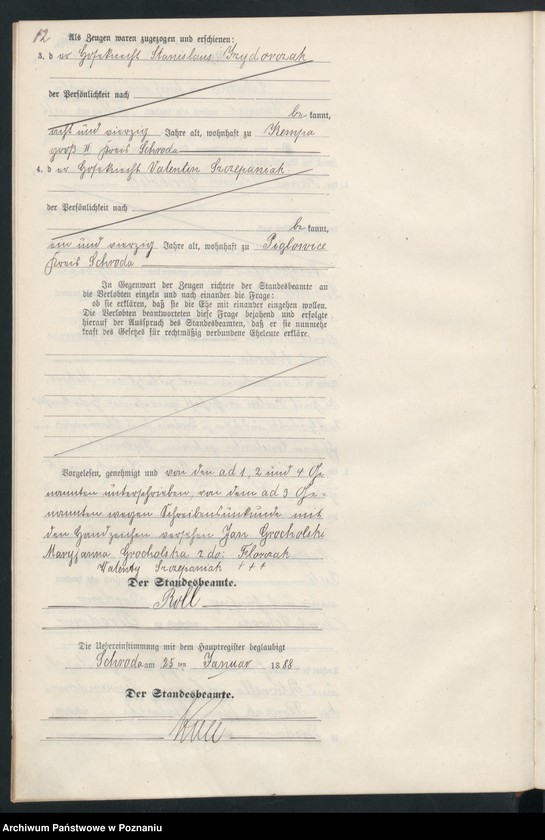 12
Als Zeugen waren zugezogen und erschienen:
3. der Hofeknecht Stanislaus Izydorczak
der Persönlichkeit nach
be kannt,
acht und vierzig Jahre alt, wohnhaft zu Kempa
groß II Kreis Schroda
4. der Hofeknecht Valentin Szczepaniak
der Persönlichkeit nach
be kannt,
ein und vierzig Jahre alt, wohnhaft zu Piglowice
Kreis Schroda
In Gegenwart der Zeugen richtete der Standesbeamte an
die Verlobten einzeln und nach einander die Frage:
ob sie erklären, daß sie die Ehe mit einander eingehen wollen.
Die Verlobten beantworteten diese Frage bejahend und erfolgte
hierauf der Ausspruch des Standesbeamten, daß er sie nunmehr
kraft des Gesetzes für rechtmäßig verbundene Eheleute erkläre.
Vorgelesen, genehmigt und von den ad 1, 2 und 4 Ge-
nannten unterschrieben, von dem ad 3 Ge-
nannten wegen Schreibensunkunde mit
den Handzeichen versehen Jan Grocholski
Maryjanna Grocholska 2do: Florczak
Valenty Szczepaniak + + +
Der Standesbeamte.
Roll
Die Uebereinstimmung mit dem Hauptregister beglaubigt
Schroda am 25 ten Januar 1888
Der Standesbeamte.
Roll
Archiwum Państwowe w Poznaniu